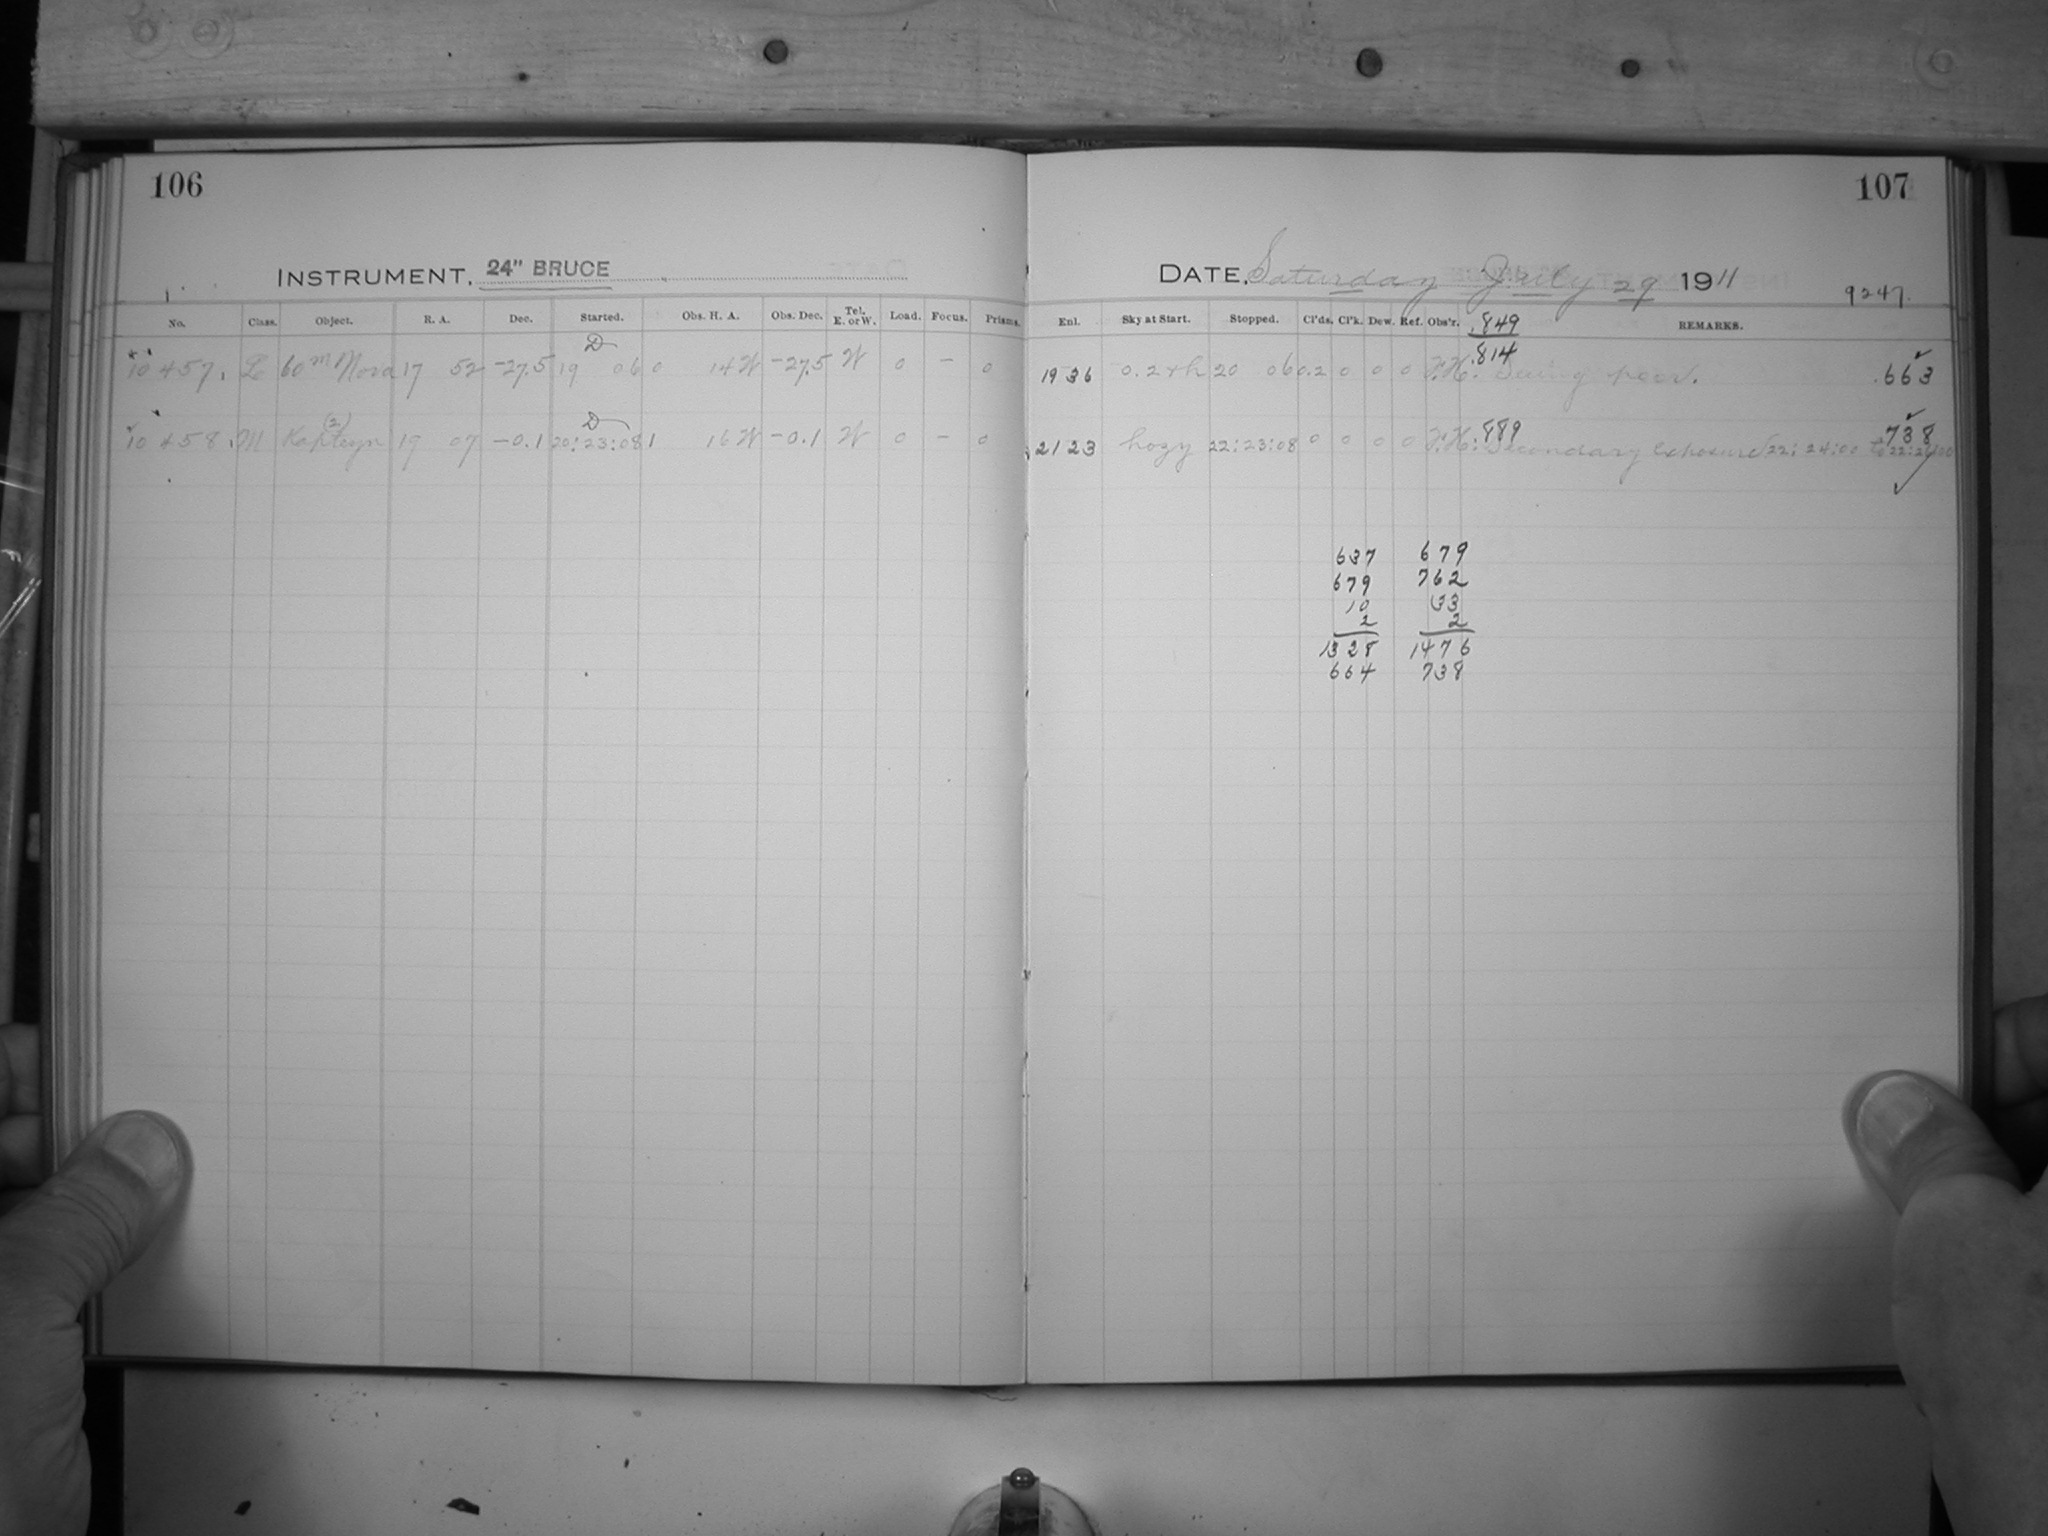 106
INSTRUMENT, 24" BRUCE
No. Class. Object. R. A. Dec. Started. Obs. H. A. Obs. Dec. Tel. E. or W. Load. Focus. Prisms.
D
10457. L 60m Nova 17 52 -27.5 19 06 0 14 W -27.5 W 0 - 0
D
(2)
10458. M Kapteyn 19 07 -0.1 20:23:08 1 16 W -0.1 W 0 - 0
107
DATE, Saturday July 29 1911
9247.
Enl. Sky at Start. Stopped. Cl'ds. Cl'k. Dew. Ref. Obs'r. .849 REMARKS.
.814
1936 0.2 + h 20 06 0.2 0 0 0 F.H. Seeing poor. .663
.889 738
2123 hazy 22:23:08 0 0 0 0 F.H. Secondary Exposure 22:24:00 to
637 679
679 762
10 33
2 2
1328 1476
664 738